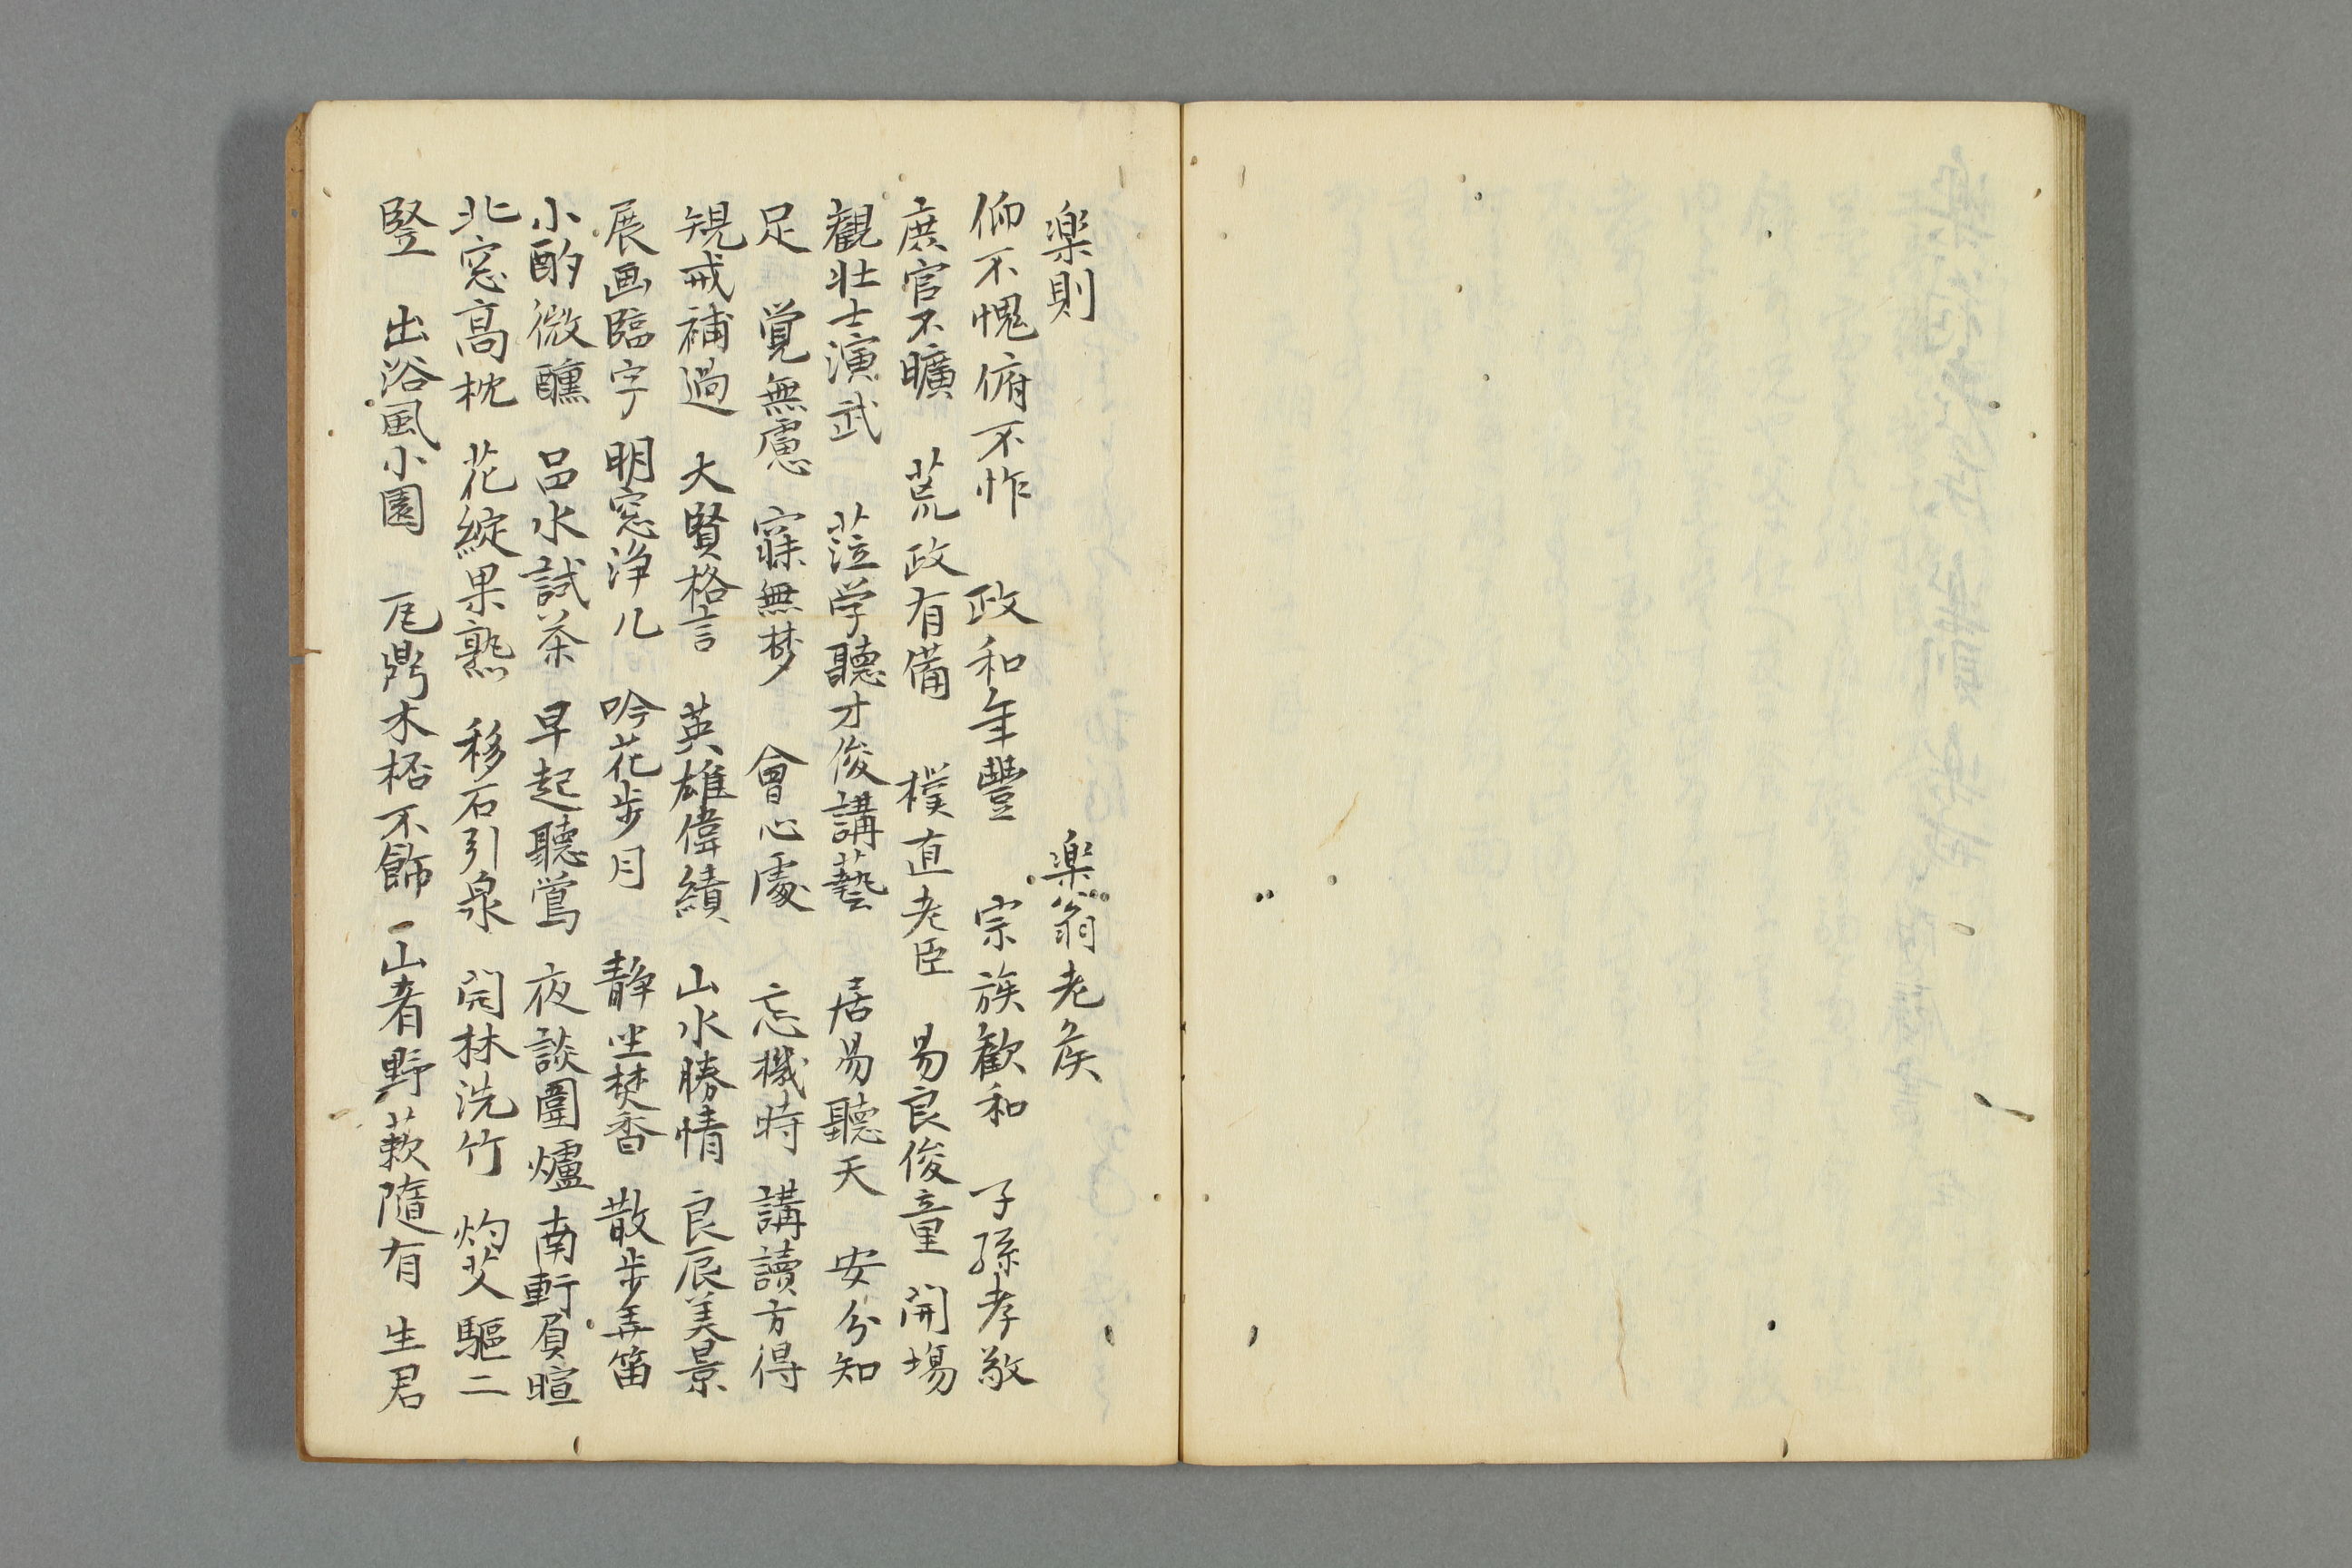 楽則　楽翁老侯
仰不愧俯不怍　政和年豐　宗族歓和　子孫孝敬
庶官不曠　荒政有備　樸直老臣　易良俊童　開場
觀壮士演武　莅学聽才俊講藝　居易聽天　安分知
足　覚無慮　寐無梦　會心處　忘機時　講讀方得
規戒補過　大賢格言　英雄偉績　山水勝情　良辰美景
展画臨字　明窓浄几　吟花歩月　静坐焚香　散歩弄笛
小酌微醺　品水試茶　早起聽鶯　夜談圍爐　南軒負暄
北窓高枕　花綻果熟　移石引泉　開林洗竹　灼艾驅二
竪　出浴風小園　瓦鼎木桮不飾　山肴野蔌隨有　生君